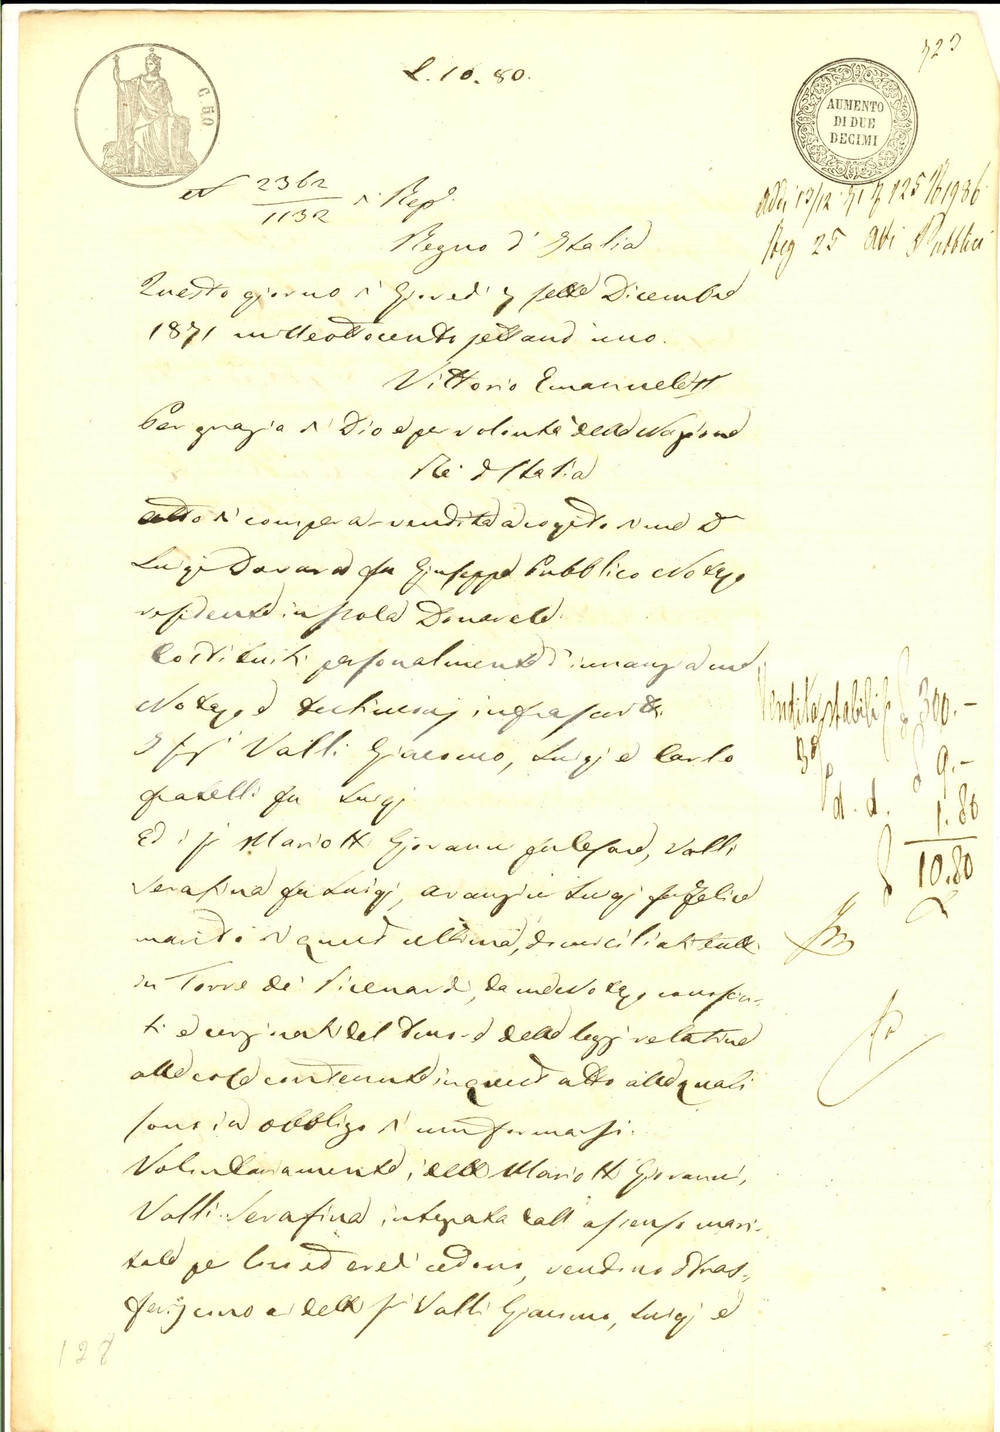 323
L. 10. 80.
C. 50
AUMENTO
DI DUE
DECIMI
N 2362/1132 di Rep.
Addì 13/12 71 N 125
Reg 25 Atti Pubblici
Regno d'Italia
Questo giorno di Giovedì 7 sette Dicembre
1871 mille ottocento settant'uno.
Vittorio Emanuele II
Per grazia di Dio e per volontà della Nazione
Re d'Italia
Atto di compera-vendita a rogito di me Dr
Luigi fu Giuseppe Pubblico Notajo
residente in Isola Dovarese.
Costituiti personalmente d'innanzi a me
Notajo e testimonj infrascritti.
I Sigi Valli Giacomo, Luigi e Carlo
fratelli fu Luigi
Ed i Si Mariotti Giovanni fu Cesare, Valli
Serafina fu Luigi, Luigi fu Felice
marito di quest'ultima, domiciliati tutti
in Torre de' Picenardi, da me Notajo
ti e del delle leggi relative
alle cose contenute in quest'atto alle quali
sono in obbligo di uniformarsi.
Volontariamente i detti Mariotti Giovanni,
Valli Serafina integrata dall'assenso mari-
tale per loro ed eredi cedono, vendono e tras-
feriscono ai detti Si Valli Giacomo, Luigi e
Vendita stabili £ 300.-
£ 9.-
d. d. 1.80
£ 10.80
128